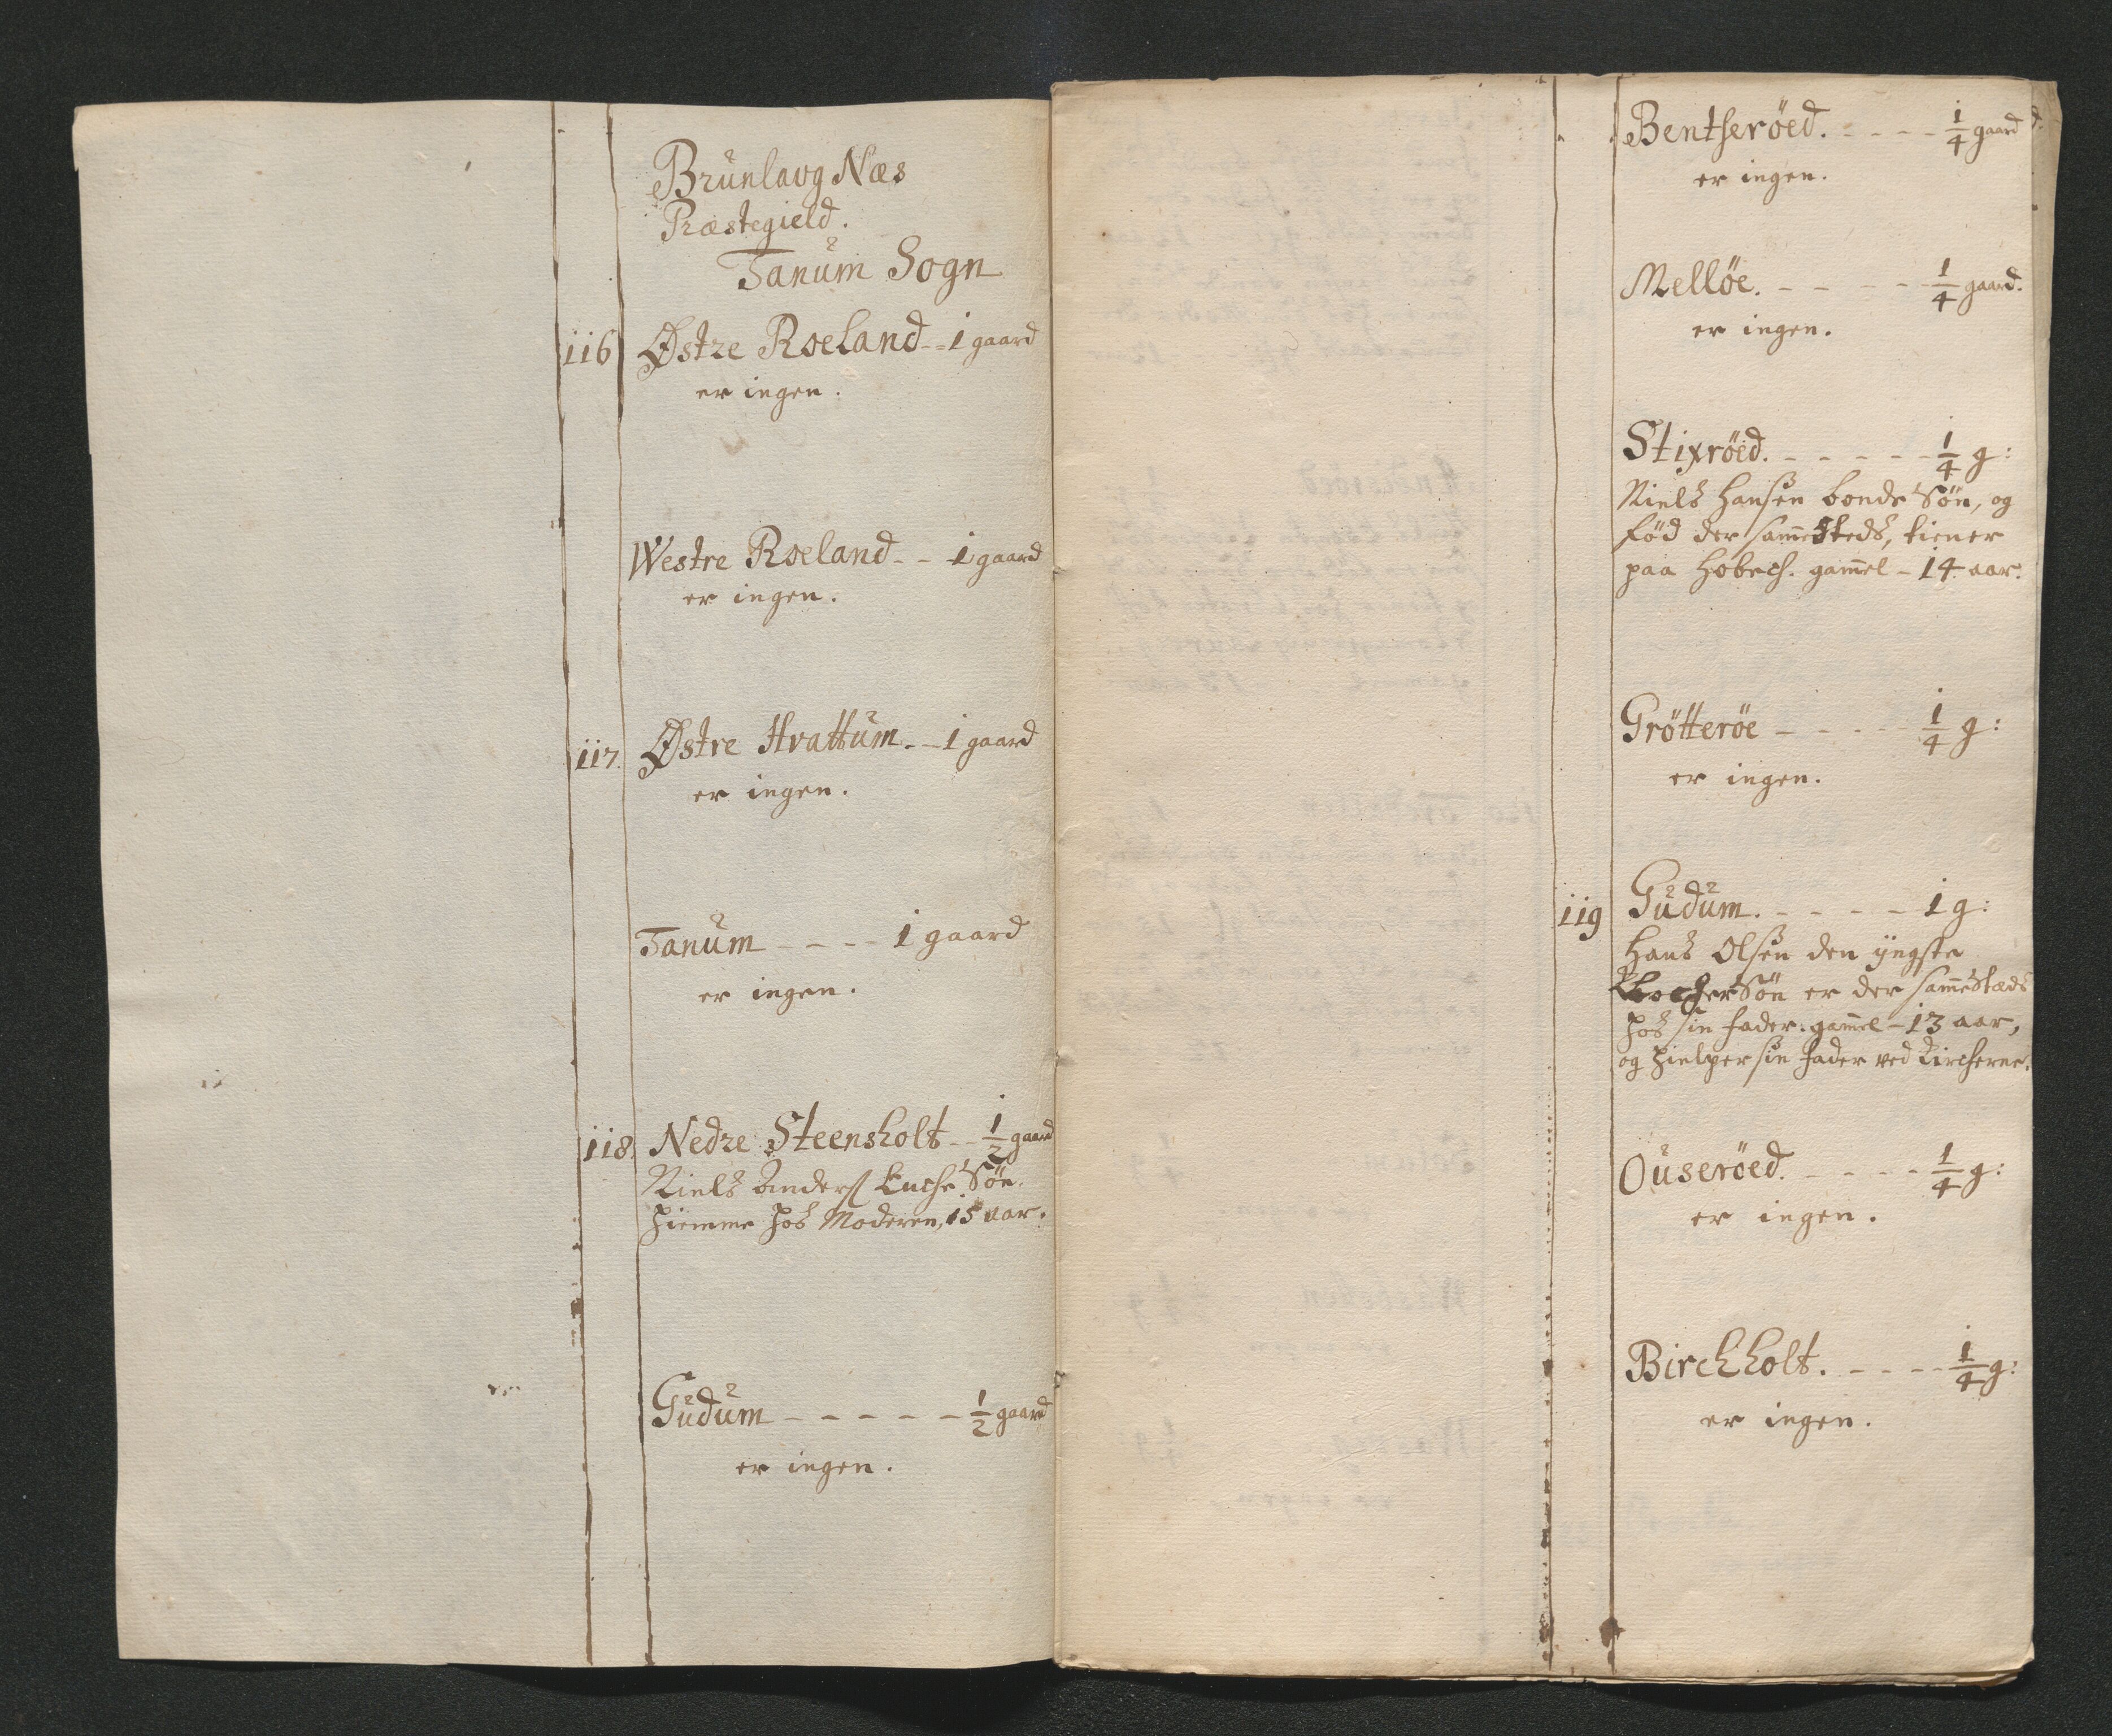 Brunlaug Næs
Præstegield.
Tanum Sogn
116 Østre Roeland - - 1 gaard
er ingen.
Westre Roeland - - 1 gaard
er ingen.
117. Østre Hvattum - - 1 gaard
er ingen.
Tanum - - - - 1 gaard
er ingen.
118. Nedre Steensholt - - 1/2 gaard
Niels Anderß Enche Søn.
hiemme hos Moderen, 15 aar.
Gudum - - - - - 1/2 gaard
er ingen.
Bentseröed. - - - - 1/4 gaard
er ingen.
Mellöe. - - - - - 1/4 gaard.
er ingen.
Stixröed. - - - - - 1/4 g:
Niels Hansen bonde Søn, og
fød der sammesteds, tiener
paa Hobech. gammel - 14 aar.
Grötteröe - - - - - 1/4 g:
er ingen.
119 Gudum. - - - - 1 g:
Hans Olsen den yngste
Søn er der sammestæds
hos sin fader: gammel - 13 aar,
og hielper sin fader ved Kircherne.
Ouseröed. - - - - 1/4 g:
er ingen.
Birchholt. - - - - 1/4 g:
er ingen.